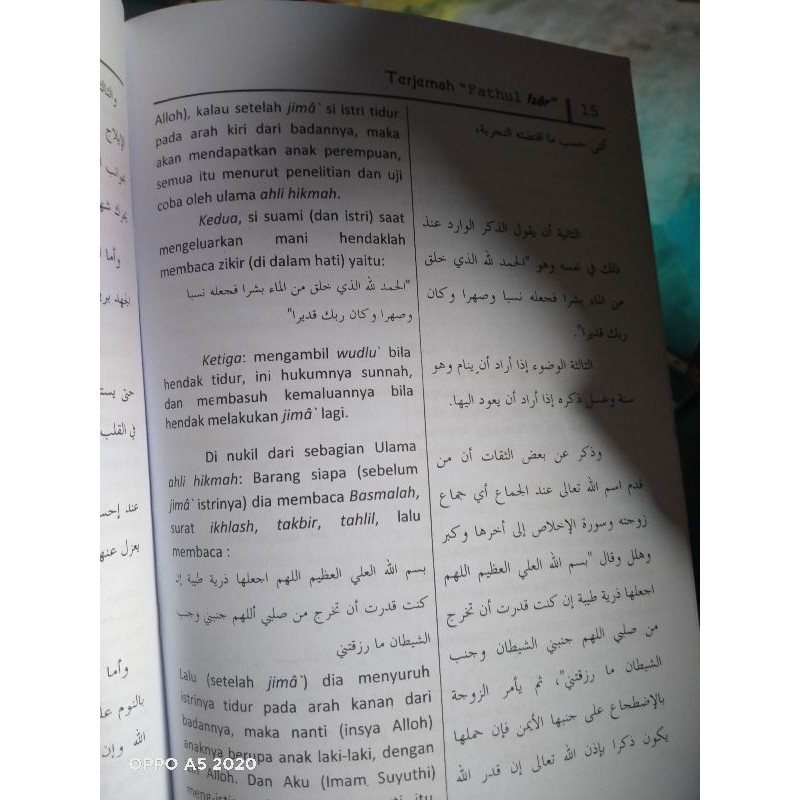 Terjemah "Fathul Izâr" 15
Alloh), kalau setelah jimâ` si istri tidur
pada arah kiri dari badannya, maka
akan mendapatkan anak perempuan,
semua itu menurut penelitian dan uji
coba oleh ulama ahli hikmah.
Kedua, si suami (dan istri) saat
mengeluarkan mani hendaklah
membaca zikir (di dalam hati) yaitu:
"الحمد لله الذي خلق من الماء بشرا فجعله نسبا
وصهرا وكان ربك قديرا"
Ketiga: mengambil wudlu` bila
hendak tidur, ini hukumnya sunnah,
dan membasuh kemaluannya bila
hendak melakukan jimâ` lagi.
Di nukil dari sebagian Ulama
ahli hikmah: Barang siapa (sebelum
jimâ` istrinya) dia membaca Basmalah,
surat ikhlash, takbir, tahlil, lalu
membaca :
بسم الله العلي العظيم اللهم اجعلها ذرية طيبة إن
كنت قدرت أن تخرج من صلبي أللهم جنبني وجنب
الشيطان ما رزقتني
Lalu (setelah jimâ`) dia menyuruh
istrinya tidur pada arah kanan dari
badannya, maka nanti (insya Alloh)
anaknya berupa anak laki-laki, dengan
Alloh. Dan Aku (Imam Suyuthi)
أنثى حسب ما اقتضته التجربة،
الثانية أن يقول الذكر الوارد عند
ذلك في نفسه وهو "الحمد لله الذي خلق
من الماء بشرا فجعله نسبا وصهرا وكان
ربك قديرا".
الثالثة الوضوء إذا أراد أن ينام وهو
سنة وغسل ذكره إذا أراد أن يعود اليها.
وذكر عن بعض الثقات أن من
قدم اسم الله تعالى عند الجماع أي جماع
زوجته وسورة الإخلاص إلى أخرها وكبر
وهلل وقال "بسم الله العلي العظيم اللهم
اجعلها ذرية طيبة إن كنت قدرت أن تخرج
من صلبي اللهم جنبني الشيطان وجنب
الشيطان ما رزقتني"، ثم يأمر الزوجة
بالإضطجاع على جنبها الأيمن فإن حملها
يكون ذكرا بإذن الله تعالى إن قدر الله
OPPO A5 2020